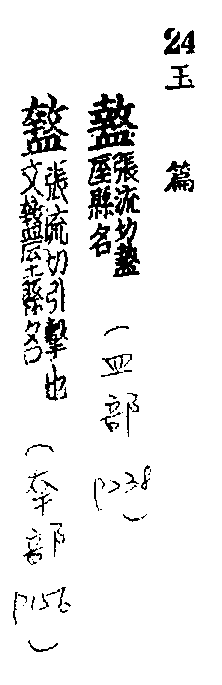 24
玉篇
盩張流切盩
厔縣名
(皿部
p238)
盩張流切引擊也
又盩厔縣名
(㚔部
p156)